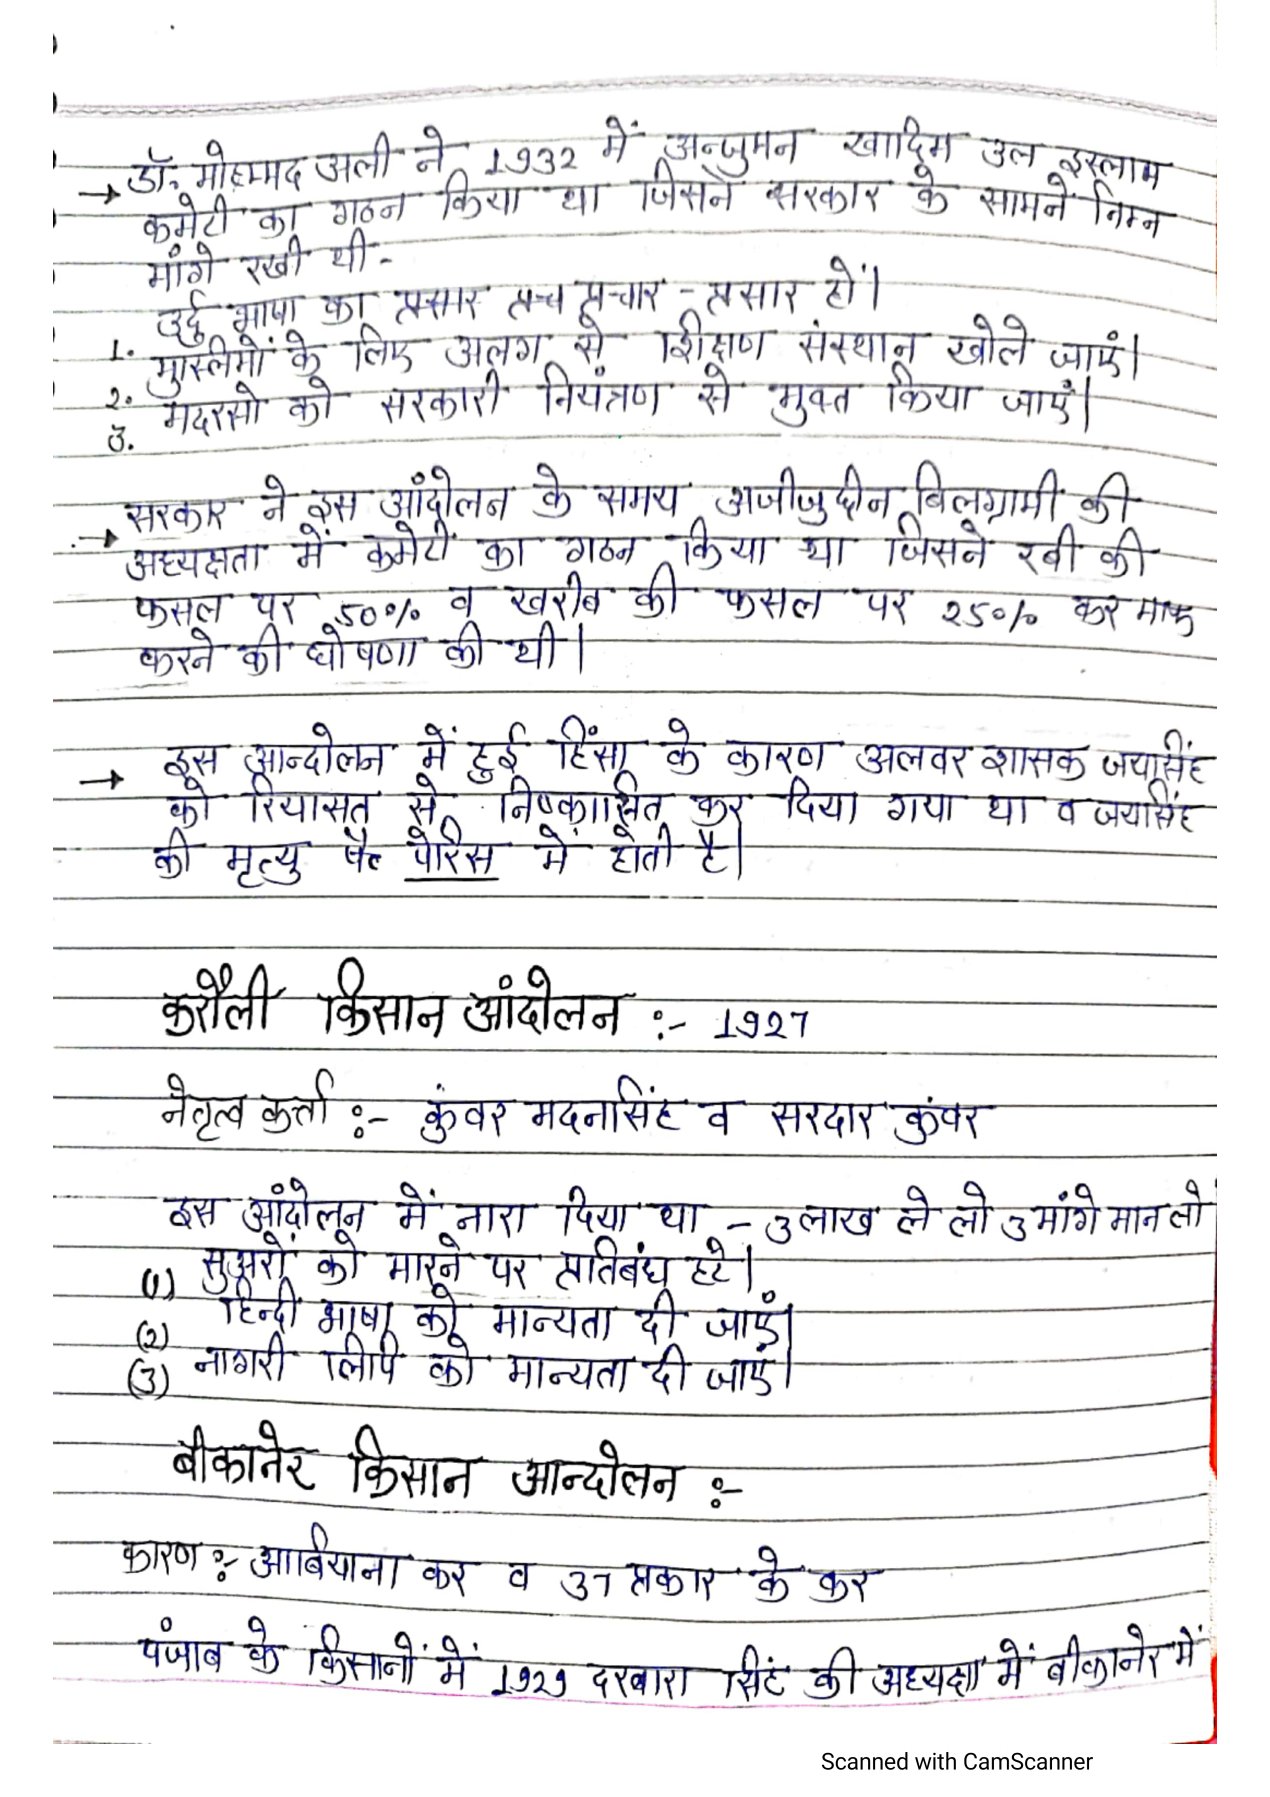 → डॉ. मोहम्मद अली ने 1932 में अन्जुमन खादिम उल इस्लाम
कमेटी का गठन किया था जिसने सरकार के सामने निम्न
मांगे रखी थी -
1. उर्दु भाषा का प्रचार - प्रसार हों।
2. मुस्लीमों के लिए अलग से शिक्षण संस्थान खोले जाएं।
3. मदरसो को सरकारी नियंत्रण से मुक्त किया जाएं।
→ सरकार ने इस आंदोलन के समय अजीजुद्दीन बिलग्रामी की
अध्यक्षता में कमेटी का गठन किया था जिसने रबी की
फसल पर 50% व खरीब की फसल पर 25% कर माफ
करने की घोषणा की थी।
→ इस आन्दोलन में हुई हिंसा के कारण अलवर शासक जयसिंह
को रियासत से निष्कासित कर दिया गया था व जयसिंह
की मृत्यु पेरिस में होती है।
करौली किसान आंदोलन :- 1927
नेतृत्व कर्त्ता :- कुंवर मदनसिंह व सरदार कुंवर
इस आंदोलन में नारा दिया था - 3 लाख ले लो 3 मांगे मान लो
(1) सुअरों को मारने पर प्रतिबंध हटे।
(2) हिन्दी भाषा को मान्यता दी जाएं।
(3) नागरी लिपि को मान्यता दी जाएं।
बीकानेर किसान आन्दोलन :-
कारण :- आबियाना कर व 37 प्रकार के कर
पंजाब के किसानों में 1929 दरबारा सिंह की अध्यक्षा में बीकानेर में
Scanned with CamScanner